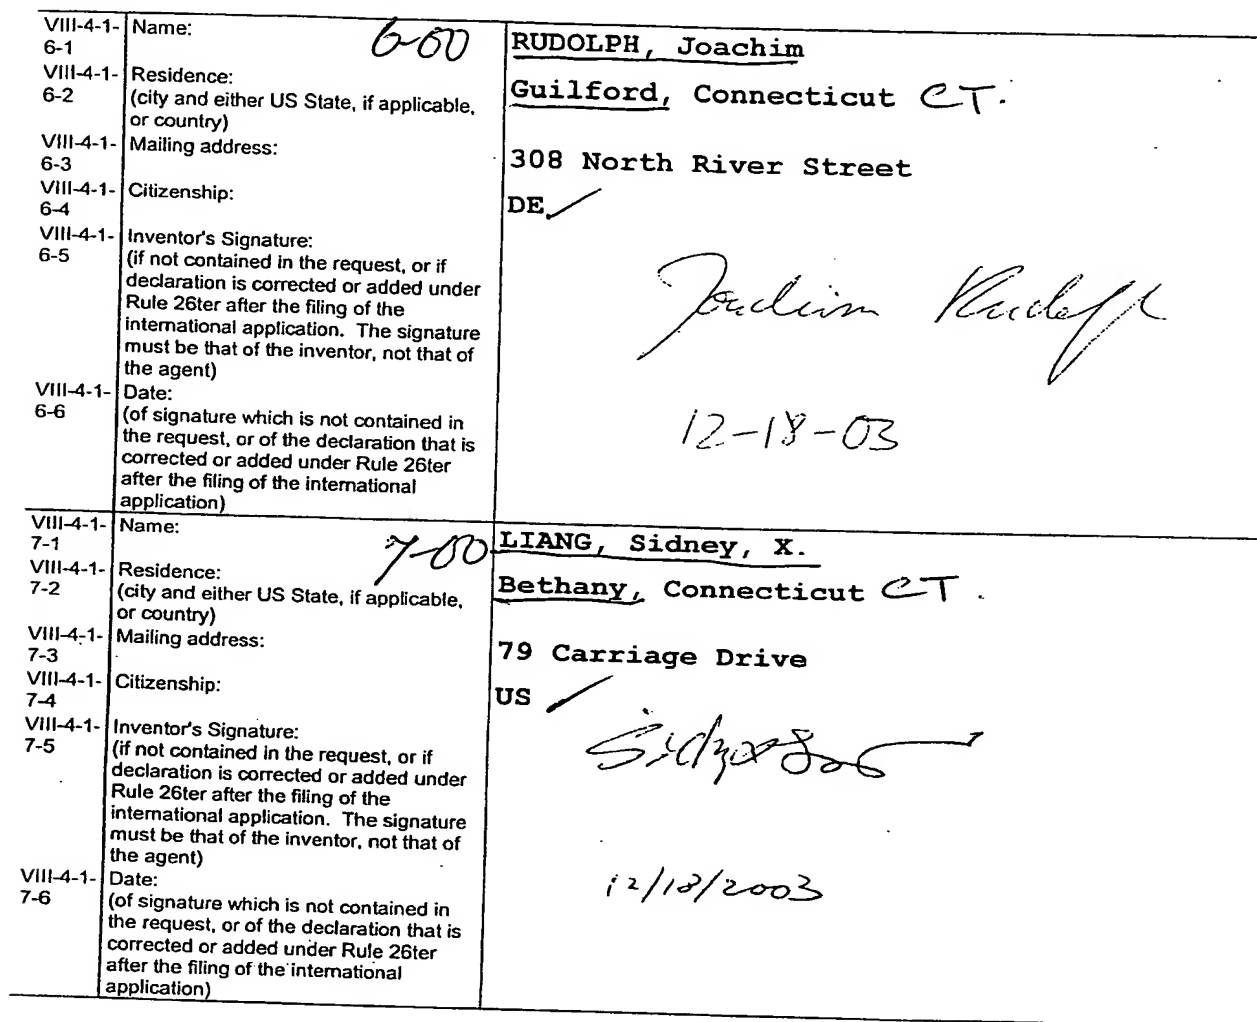 VIII-4-1-6-1 Name: 6-00 RUDOLPH, Joachim
VIII-4-1-6-2 Residence: Guilford, Connecticut CT.
(city and either US State, if applicable,
or country)
VIII-4-1-6-3 Mailing address: 308 North River Street
VIII-4-1-6-4 Citizenship: DE
VIII-4-1-6-5 Inventor's Signature:
(if not contained in the request, or if
declaration is corrected or added under
Rule 26ter after the filing of the
international application. The signature
must be that of the inventor, not that of
the agent)
Joachim Rudolph
VIII-4-1-6-6 Date:
(of signature which is not contained in
the request, or of the declaration that is
corrected or added under Rule 26ter
after the filing of the international
application)
12-18-03
VIII-4-1-7-1 Name: 7-00 LIANG, Sidney, X.
VIII-4-1-7-2 Residence: Bethany, Connecticut CT.
(city and either US State, if applicable,
or country)
VIII-4-1-7-3 Mailing address: 79 Carriage Drive
VIII-4-1-7-4 Citizenship: US
VIII-4-1-7-5 Inventor's Signature:
(if not contained in the request, or if
declaration is corrected or added under
Rule 26ter after the filing of the
international application. The signature
must be that of the inventor, not that of
the agent)
VIII-4-1-7-6 Date:
(of signature which is not contained in
the request, or of the declaration that is
corrected or added under Rule 26ter
after the filing of the international
application)
12/18/2003